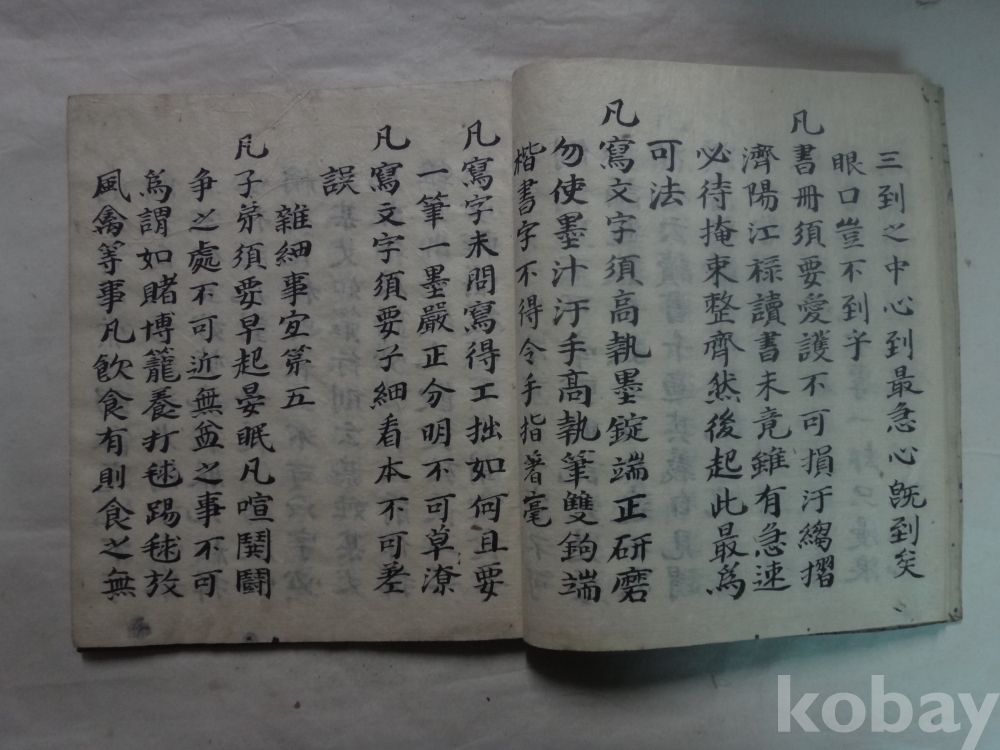 三到之中心到最急心旣到矣
眼口豈不到乎
凡書冊須要愛護不可損汙縐摺
濟陽江祿讀書未竟雖有急速
必待掩束整齊然後起此最爲
可法
凡寫文字須高執墨錠端正硏磨
勿使墨汁汙手高執筆雙鉤端
楷書字不得令手指著毫
凡寫字未問寫得工拙如何且要
一筆一墨嚴正分明不可草潦
凡寫文字須要子細看本不可差
誤
雜細事宜第五
凡子弟須要早起晏眠凡喧鬨鬪
爭之處不可近無益之事不可
爲謂如賭博籠養打毬踢毬放
風禽等事凡飮食有則食之無
kobay